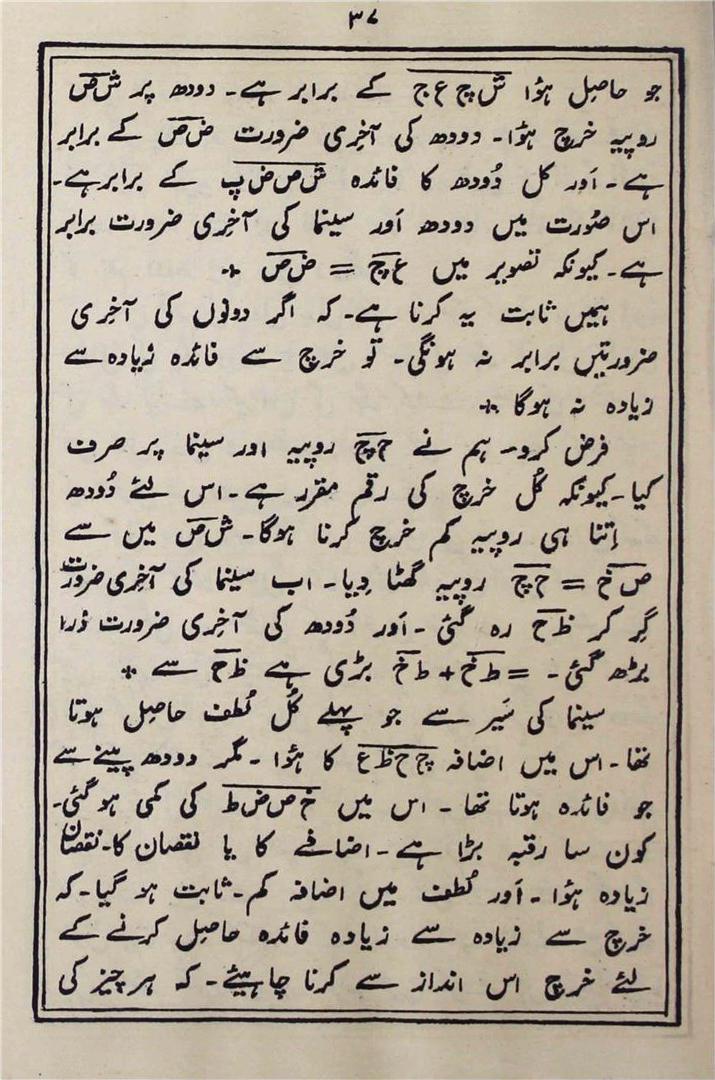 ۳۷
جو حاصِل ہؤا ش چ ع ج کے برابر ہے۔ دودھ پر ش ص
روپیہ خرچ ہؤا۔ دودھ کی آخِری ضرورت ض ص کے برابر
ہے۔ اَور کل دُودھ کا فائدہ ش ص ض پ کے برابر ہے۔
اس صُورت میں دودھ اَور سینما کی آخِری ضرورت برابر
ہے۔ کیونکہ تصویر میں ع چ = ض ص ٭
ہمیں ثابت یہ کرنا ہے۔ کہ اگر دونوں کی آخِری
ضرورتیں برابر نہ ہونگی۔ تو خرچ سے فائدہ زیادہ سے
زیادہ نہ ہوگا ٭
فرض کرو۔ ہم نے ح چ روپیہ اور سینما پر صرف
کیا۔ کیونکہ کُل خرچ کی رقم مقرر ہے۔ اس لئے دُودھ
اِتنا ہی روپیہ کم خرچ کرنا ہوگا۔ ش ص میں سے
ص خ = ح چ روپیہ گھٹا دِیا۔ اب سینما کی آخِری ضرورت
گِر کر ظ ح رہ گئی۔ اَور دُودھ کی آخِری ضرورت ذرا
بڑھ گئی۔ = ط خ + ط خ بڑی ہے ظ ح سے ٭
سینما کی سَیر سے جو پہلے کُل لُطف حاصِل ہوتا
تھا۔ اس میں اضافہ چ ح ظ ع کا ہؤا۔ مگر دودھ پینے سے
جو فائدہ ہوتا تھا۔ اس میں خ ص ض ط کی کمی ہو گئی۔
کون سا رقبہ بڑا ہے۔ اضافے کا یا نقصان کا۔ نقصان
زیادہ ہؤا۔ اَور لُطف میں اضافہ کم۔ ثابت ہو گیا۔ کہ
خرچ سے زیادہ سے زیادہ فائدہ حاصِل کرنے کے
لئے خرچ اس انداز سے کرنا چاہیئے۔ کہ ہر چیز کی